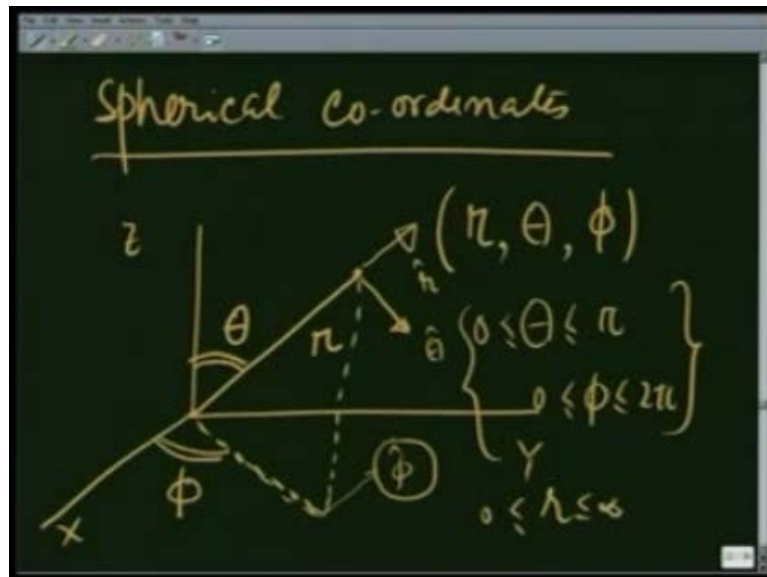 Spherical co-ordinates
z
(r, θ, ϕ)
r̂
θ
r
θ̂
0 ≤ θ ≤ π
0 ≤ ϕ ≤ 2π
ϕ
ϕ̂
Y
0 ≤ r ≤ ∞
X